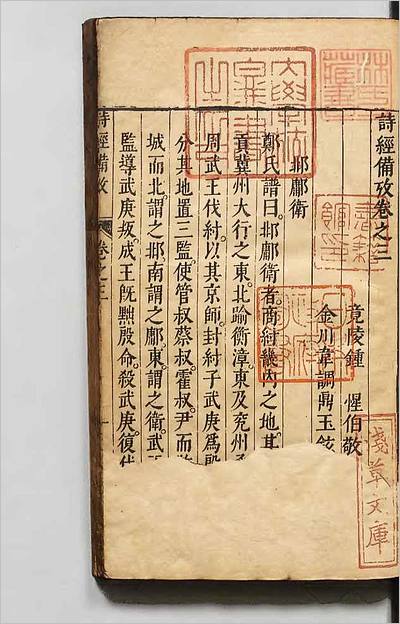 詩經備攷卷之三
竟陵鍾　惺伯敬
金川韋調鼎玉鉉
邶鄘衛
鄭氏譜曰。邶鄘衛者。商紂畿內之地。其
貢冀州大行之東。北踰衡漳。東及兗州
周武王伐紂。以其京師。封紂子武庚爲殷
分其地置三監。使管叔蔡叔。霍叔。尹而
城而北。謂之邶。南謂之鄘。東謂之衛。武
監導武庚叛。成王旣黜殷命。殺武庚。復
詩經備攷
卷之三
淺草文庫